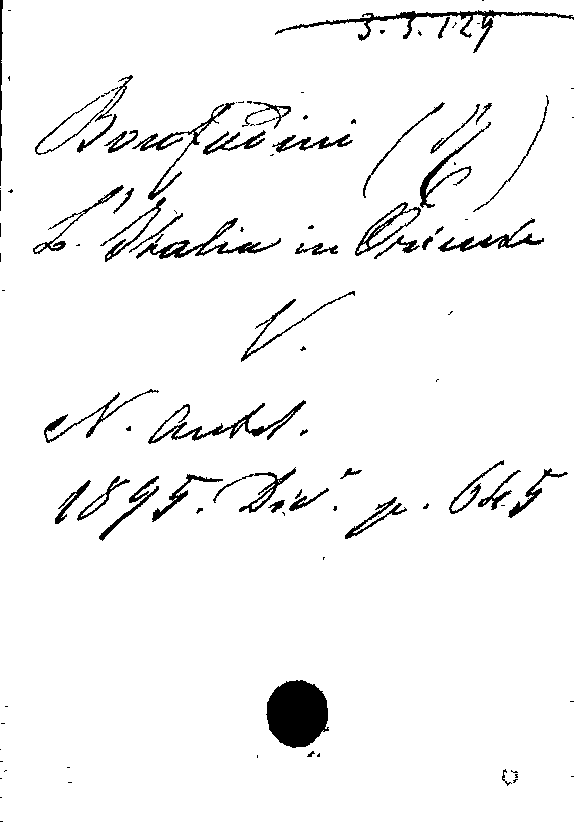 3.3.129
Bonfadini (R)
L'Italia in Oriente
V.
N. Antol.
1895. Dic.e p. 645